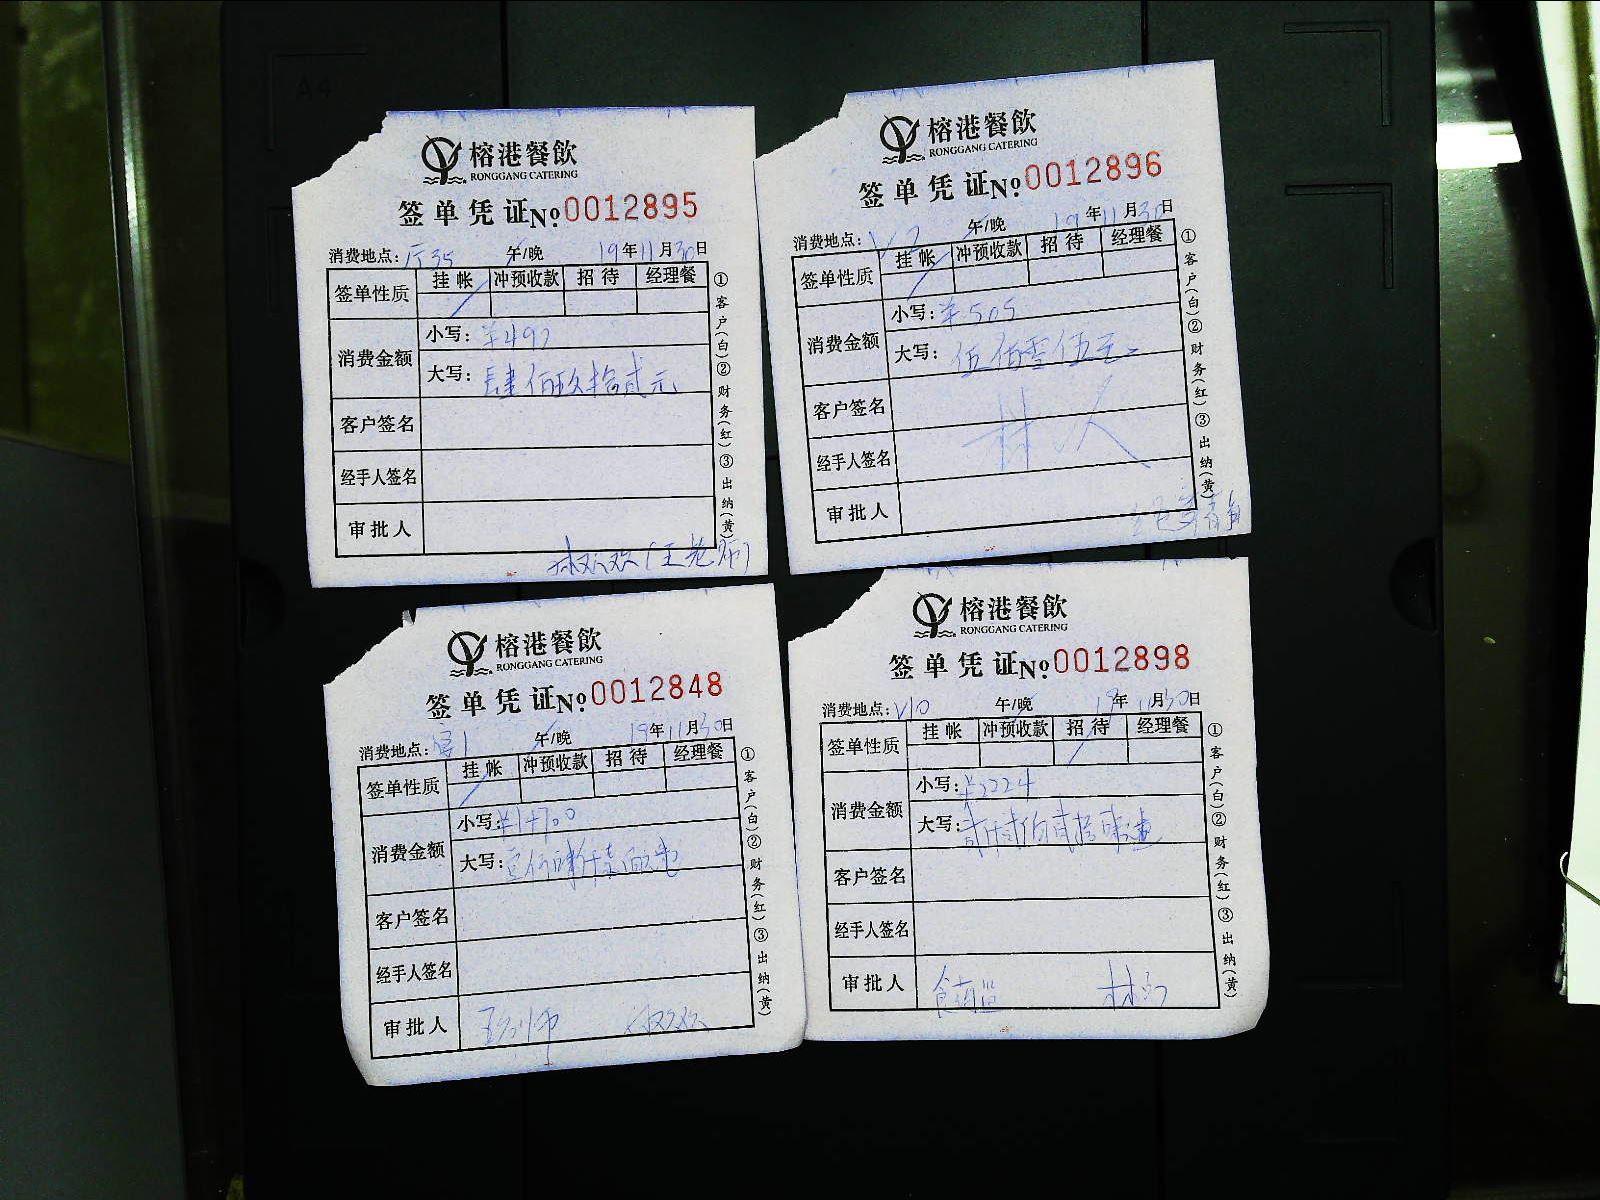 A4
榕港餐飲
RONGGANG CATERING
签单凭证 No.0012895
消费地点: 厅35 午/晚 19年11月30日
签单性质 挂帐 冲预收款 招待 经理餐
消费金额 小写: ¥492
大写: 肆佰玖拾贰元
客户签名
经手人签名
审批人
林欢欢(王老师)
①客户(白)②财务(红)③出纳(黄)
榕港餐飲
RONGGANG CATERING
签单凭证 No.0012896
消费地点: V2 午/晚 19年11月30日
签单性质 挂帐 冲预收款 招待 经理餐
消费金额 小写: ¥505
大写: 伍佰零伍元
客户签名
经手人签名
审批人
①客户(白)②财务(红)③出纳(黄)
榕港餐飲
RONGGANG CATERING
签单凭证 No.0012848
消费地点: 午/晚 19年11月30日
签单性质 挂帐 冲预收款 招待 经理餐
消费金额 小写:
大写:
客户签名
经手人签名
审批人
①客户(白)②财务(红)③出纳(黄)
榕港餐飲
RONGGANG CATERING
签单凭证 No.0012898
消费地点: V10 午/晚 19年11月30日
签单性质 挂帐 冲预收款 招待 经理餐
消费金额 小写: ¥2224
大写: 贰仟贰佰贰拾肆
客户签名
经手人签名
审批人 食药监
①客户(白)②财务(红)③出纳(黄)